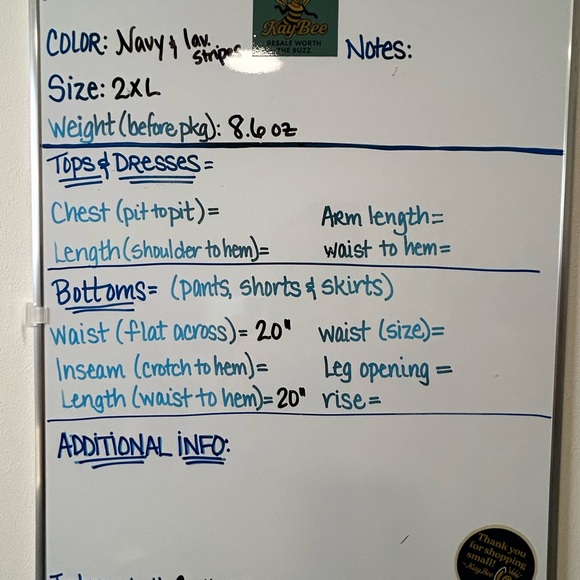 KayBee
RESALE WORTH
THE BUZZ
COLOR: Navy & lav. stripes
Notes:
Size: 2XL
Weight (before pkg): 8.6 oz
Tops & Dresses=
Chest (pit to pit)=
Arm length=
Length (shoulder to hem)=
waist to hem=
Bottoms= (pants, shorts & skirts)
Waist (flat across)= 20"
waist (size)=
Inseam (crotch to hem)=
Leg opening =
Length (waist to hem)= 20"
rise=
ADDITIONAL INFO:
Thank you
for shopping
small!